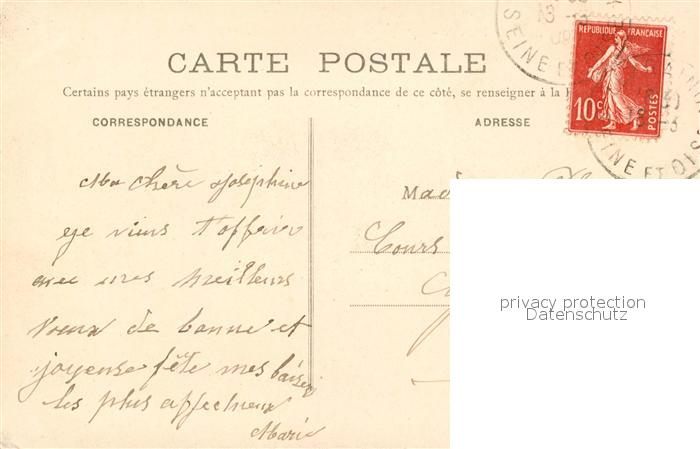 CARTE POSTALE
Certains pays étrangers n'acceptant pas la correspondance de ce côté, se renseigner à la
CORRESPONDANCE
ADRESSE
REPUBLIQUE FRANÇAISE
10c
POSTES
SEINE ET OISE
Ma chère Joséphine
je viens t'offrir
avec mes meilleurs
vœux de bonne et
joyeuse fête mes baisers
les plus affectueux
Marie
Mad
Cours
privacy protection
Datenschutz